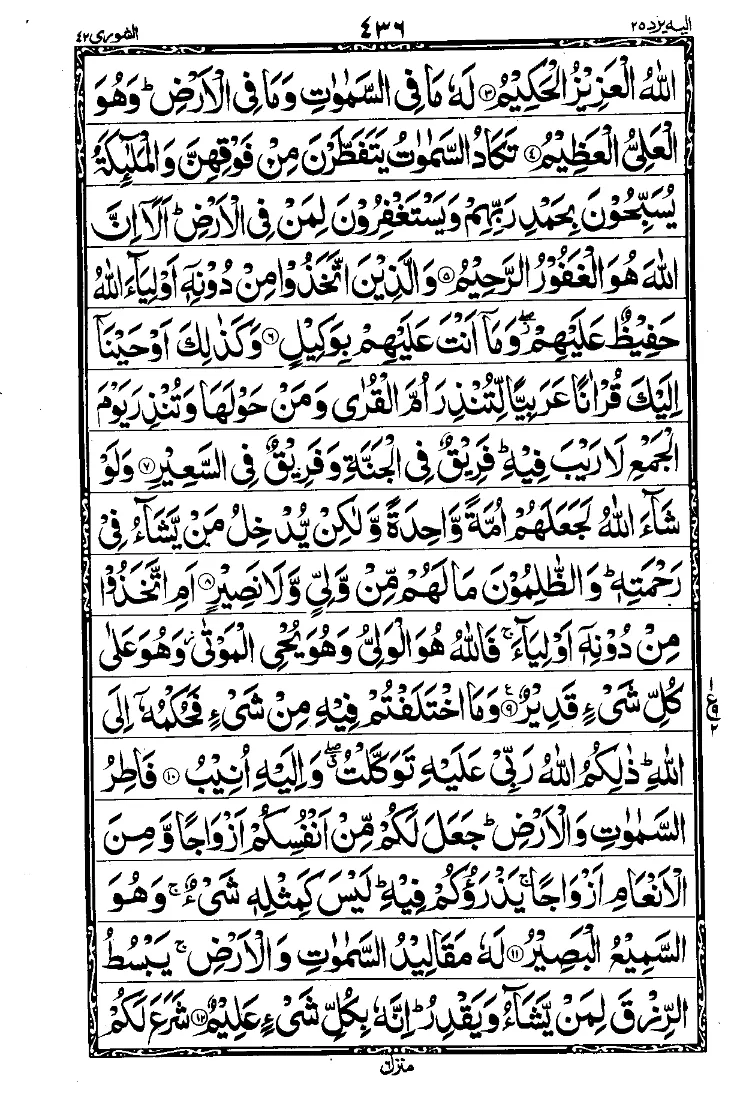 الیه یرد ٢٥ ٤٣٦ الشورى ٤٢
اللّٰهُ الْعَزِيْزُ الْحَكِيْمُ ﴿٣﴾ لَهٗ مَا فِى السَّمٰوٰتِ وَمَا فِى الْاَرْضِ ؕ وَهُوَ
الْعَلِىُّ الْعَظِيْمُ ﴿٤﴾ تَكَادُ السَّمٰوٰتُ يَتَفَطَّرْنَ مِنْ فَوْقِهِنَّ وَالْمَلٰٓئِكَةُ
يُسَبِّحُوْنَ بِحَمْدِ رَبِّهِمْ وَيَسْتَغْفِرُوْنَ لِمَنْ فِى الْاَرْضِ ؕ اَلَاۤ اِنَّ
اللّٰهَ هُوَ الْغَفُوْرُ الرَّحِيْمُ ﴿٥﴾ وَالَّذِيْنَ اتَّخَذُوْا مِنْ دُوْنِهٖۤ اَوْلِيَآءَ اللّٰهُ
حَفِيْظٌ عَلَيْهِمْ ۖ وَمَاۤ اَنْتَ عَلَيْهِمْ بِوَكِيْلٍ ﴿٦﴾ وَكَذٰلِكَ اَوْحَيْنَاۤ
اِلَيْكَ قُرْاٰنًا عَرَبِيًّا لِّتُنْذِرَ اُمَّ الْقُرٰى وَمَنْ حَوْلَهَا وَتُنْذِرَ يَوْمَ
الْجَمْعِ لَا رَيْبَ فِيْهِ ؕ فَرِيْقٌ فِى الْجَنَّةِ وَفَرِيْقٌ فِى السَّعِيْرِ ﴿٧﴾ وَلَوْ
شَآءَ اللّٰهُ لَجَعَلَهُمْ اُمَّةً وَّاحِدَةً وَّلٰكِنْ يُّدْخِلُ مَنْ يَّشَآءُ فِىْ
رَحْمَتِهٖ ؕ وَالظّٰلِمُوْنَ مَا لَهُمْ مِّنْ وَّلِىٍّ وَّلَا نَصِيْرٍ ﴿٨﴾ اَمِ اتَّخَذُوْا
مِنْ دُوْنِهٖۤ اَوْلِيَآءَ ۚ فَاللّٰهُ هُوَ الْوَلِىُّ وَهُوَ يُحْىِ الْمَوْتٰى ۡ وَهُوَ عَلٰى
كُلِّ شَىْءٍ قَدِيْرٌ ﴿٩﴾ وَمَا اخْتَلَفْتُمْ فِيْهِ مِنْ شَىْءٍ فَحُكْمُهٗۤ اِلَى
اللّٰهِ ؕ ذٰلِكُمُ اللّٰهُ رَبِّىْ عَلَيْهِ تَوَكَّلْتُ ۖ وَاِلَيْهِ اُنِيْبُ ﴿١٠﴾ فَاطِرُ
السَّمٰوٰتِ وَالْاَرْضِ ؕ جَعَلَ لَكُمْ مِّنْ اَنْفُسِكُمْ اَزْوَاجًا وَّمِنَ
الْاَنْعَامِ اَزْوَاجًا ۚ يَذْرَؤُكُمْ فِيْهِ ؕ لَيْسَ كَمِثْلِهٖ شَىْءٌ ۚ وَهُوَ
السَّمِيْعُ الْبَصِيْرُ ﴿١١﴾ لَهٗ مَقَالِيْدُ السَّمٰوٰتِ وَالْاَرْضِ ۚ يَبْسُطُ
الرِّزْقَ لِمَنْ يَّشَآءُ وَيَقْدِرُ ؕ اِنَّهٗ بِكُلِّ شَىْءٍ عَلِيْمٌ ﴿١٢﴾ شَرَعَ لَكُمْ
منزل ٦